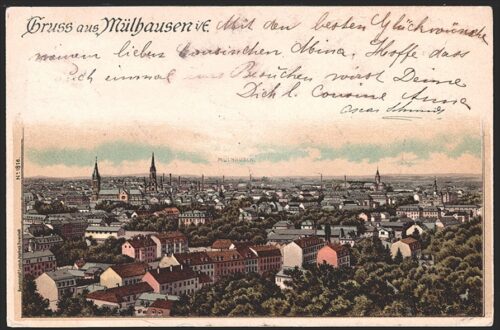 Gruss aus Mülhausen i/E.
Mit den besten Glückwünsche
meinen lieben Cousinchen Mina. Hoffe dass
auch einmal uns Besuchen wirst Deine
Dich l. Cousine Anna
Oscar Schmidt
MÜLHAUSEN.
No 1814